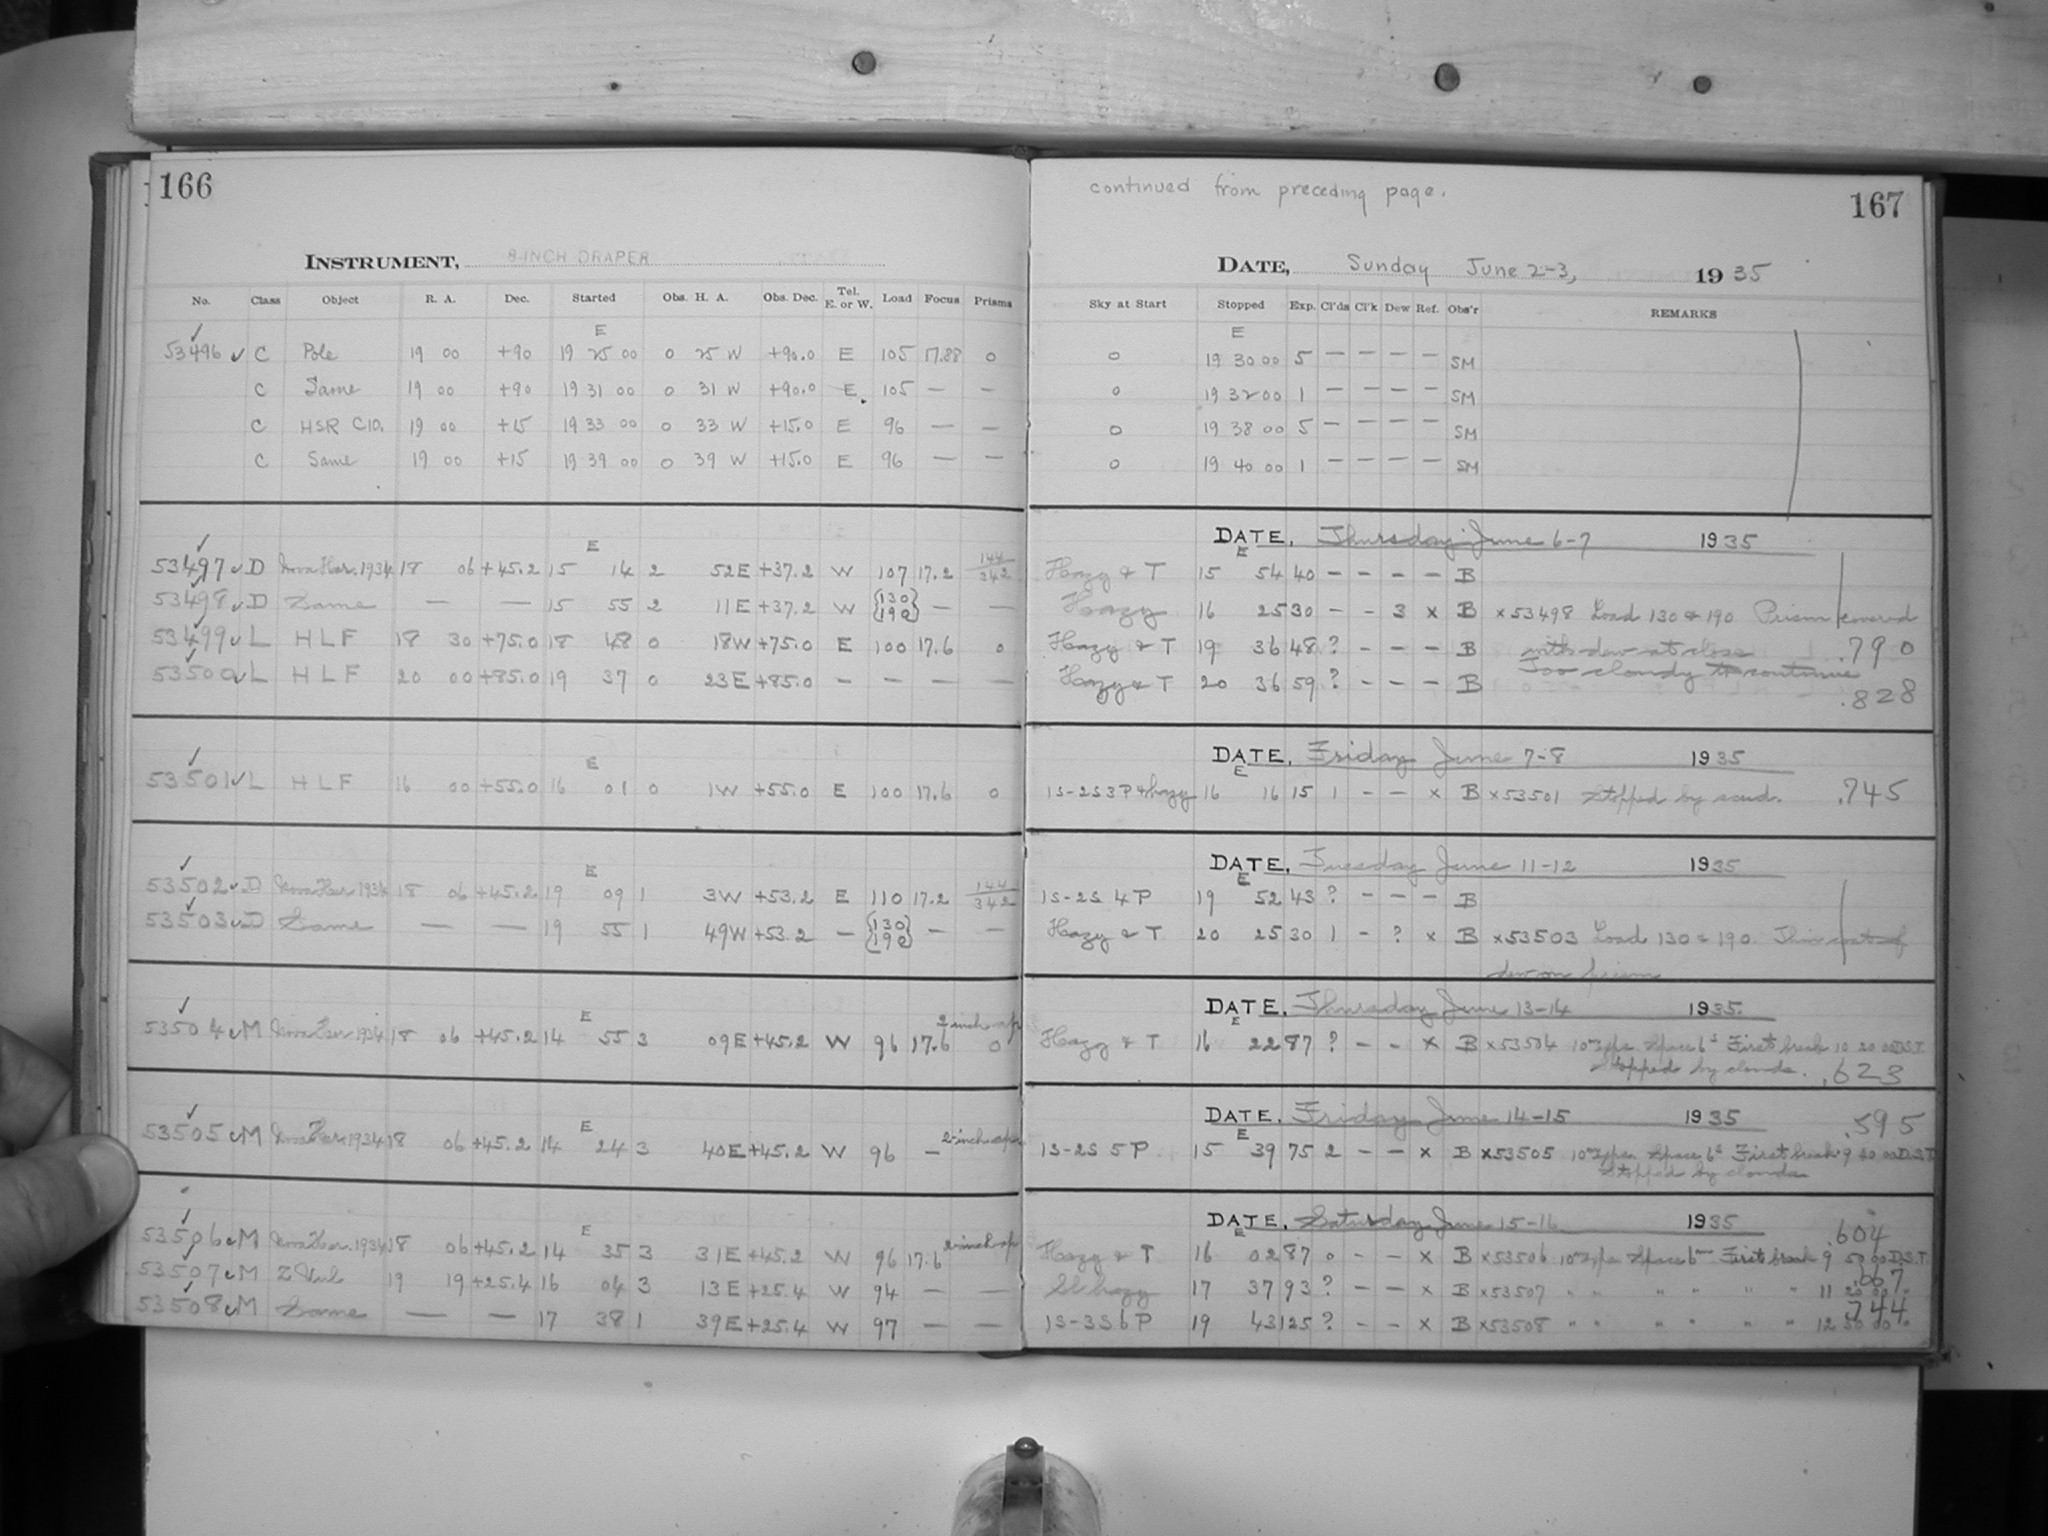 166
INSTRUMENT, 8-INCH DRAPER
No. Class Object R. A. Dec. Started Obs. H. A. Obs. Dec. Tel. E. or W. Load Focus Prisms
E
53496 ✓ C Pole 19 00 +90 19 25 00 0 25 W +90.0 E 105 17.88 0
C Same 19 00 +90 19 31 00 0 31 W +90.0 E 105 — —
C HSR C10. 19 00 +15 19 33 00 0 33 W +15.0 E 96 — —
C Same 19 00 +15 19 39 00 0 39 W +15.0 E 96 — —
E
53497 ✓ D Nova Her. 1934 18 06 +45.2 15 14 2 52 E +37.2 W 107 17.2 144/342
53498 ✓ D Same — — 15 55 2 11 E +37.2 W {130 190} — —
53499 ✓ L H L F 18 30 +75.0 18 48 0 18 W +75.0 E 100 17.6 0
53500 ✓ L H L F 20 00 +85.0 19 37 0 23 E +85.0 — — — —
E
53501 ✓ L H L F 16 00 +55.0 16 01 0 1 W +55.0 E 100 17.6 0
E
53502 ✓ D Nova Her 1934 18 06 +45.2 19 09 1 3 W +53.2 E 110 17.2 144/342
53503 ✓ D Same — — 19 55 1 49 W +53.2 — {130 190} — —
E
53504 ✓ M Nova Her 1934 18 06 +45.2 14 55 3 09 E +45.2 W 96 17.6 2 inch ap 0
E
53505 ✓ M Nova Her 1934 18 06 +45.2 14 24 3 40 E +45.2 W 96 — 2-inch ap
E
53506 ✓ M Nova Her. 1934 18 06 +45.2 14 35 3 31 E +45.2 W 96 17.6 2-inch ap
53507 ✓ M Z Vul 19 19 +25.4 16 04 3 13 E +25.4 W 94 — —
53508 ✓ M Same — — 17 38 1 39 E +25.4 W 97 — —
continued from preceding page.
167
DATE, Sunday June 2-3, 1935
Sky at Start Stopped Exp. Cl'ds Cl'k Dew Ref. Obs'r REMARKS
E
0 19 30 00 5 — — — — SM
0 19 32 00 1 — — — — SM
0 19 38 00 5 — — — — SM
0 19 40 00 1 — — — — SM
DATE, Thursday June 6-7 1935
E
Hazy & T 15 54 40 — — — — B
Hazy 16 25 30 — — 3 x B x53498 Load 130 & 190 Prism covered
Hazy & T 19 36 48 ? — — — B with dew at close .790
Hazy & T 20 36 59 ? — — — B Too cloudy to continue
.828
DATE, Friday June 7-8 1935
E
1S-2S 3P & hazy 16 16 15 1 — — x B x53501 Stopped by scud. .745
DATE, Tuesday June 11-12 1935
E
1S-2S 4P 19 52 43 ? — — — B
Hazy & T 20 25 30 1 — ? x B x53503 Load 130 & 190. Thin coat of
dew on prism
DATE, Thursday June 13-14 1935.
E
Hazy & T 16 22 87 ? — — x B x53504 10 Exps. Space 6s First break 10 20 00 D.S.T.
Stopped by clouds. .623
DATE, Friday June 14-15 1935 .595
E
1S-2S 5P 15 39 75 2 — — x B x53505 10 Exps. Space 6s First break 9 40 00 D.S.T
Stopped by clouds
DATE, Saturday June 15-16 1935 .604
E
Hazy & T 16 02 87 0 — — x B x53506 10 Exps Space 6m First break 9 50 00 D.S.T.
.667
Sl hazy 17 37 93 ? — — x B x53507 " " " " " " 11 20 00 "
.744
1S-3S 6P 19 43 125 ? — — x B x53508 " " " " " " 12 50 00 "